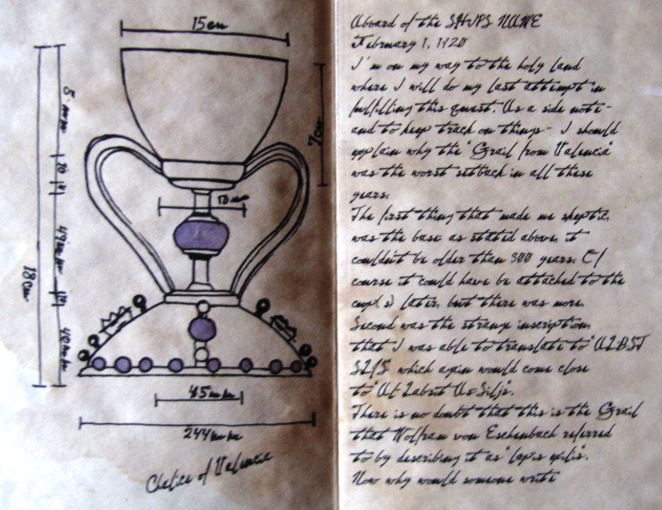 15cm
7cm
18cm
45mm
244mm
Chalice of Valencia
Aboard of the SHIPS NAME
February 1, 1920
I'm on my way to the holy land
where I will do my last attempt in
fulfilling this quest. As a side note -
and to keep track on things - I should
explain why the "Grail from Valencia"
was the worst setback in all these
years.
The first thing that made me skeptic,
was the base as stated above, it
couldn't be older than 300 years. Of
course it could have be attached to the
later, but there was more.
Second was the strange inscription,
that I was able to translate to
which again would come close
to
There is no doubt that this is the Grail
that Wolfram von Eschenbach referred
to by describing it as "lapis exilis".
Now why would someone write